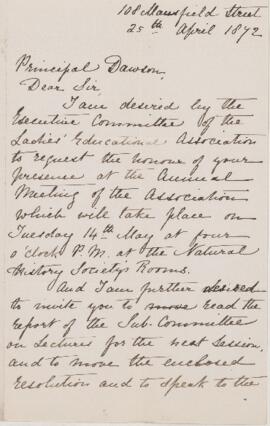 108 Mansfield Street
25th April 1872
Principal Dawson,
Dear Sir,
I am desired by the
Executive Committee of the
Ladies' Educational Association
to request the honour of your
presence at the Annual
Meeting of the Association
which will take place on
Tuesday 14th May at four
o'clock P.M. at the Natural
History Society's Rooms.
And I am further desired
to invite you to move read the
report of the Sub-Committee
on Lectures for the next Session,
and to move the enclosed
resolution and to speak to the